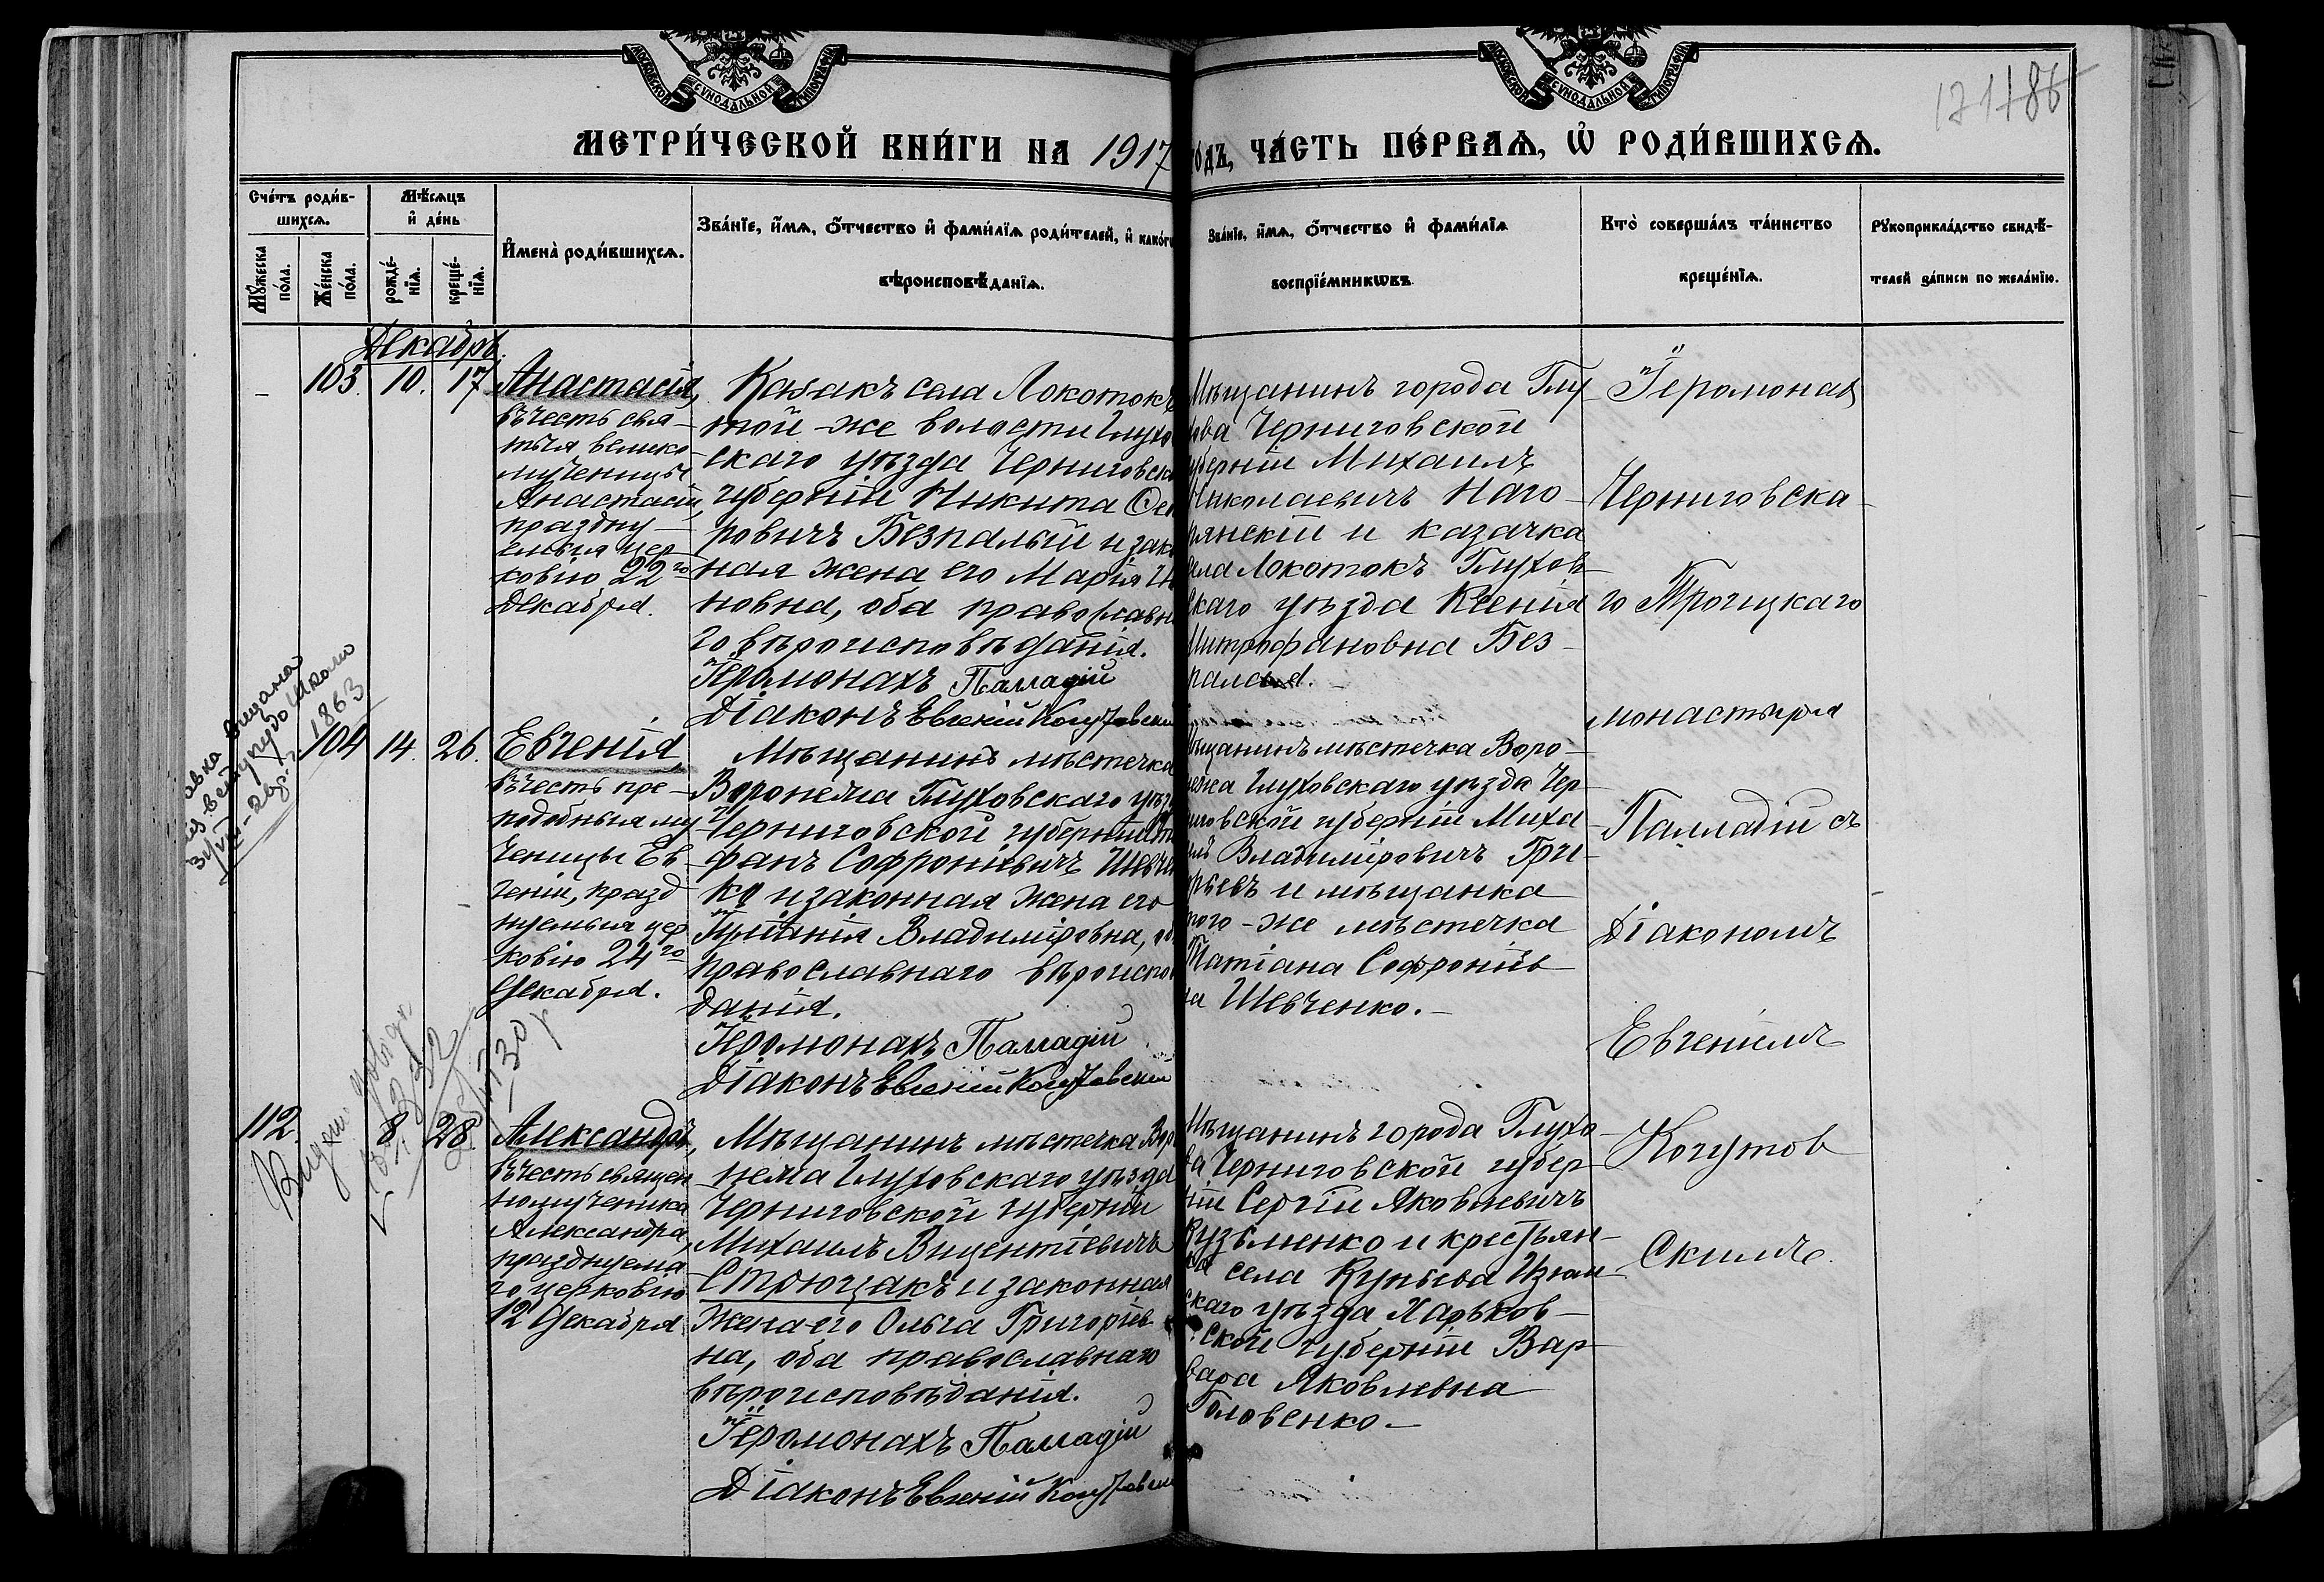 МОСКОВСКОЙ СѴНОДАЛЬНОЙ ТИПОГРАФІИ
МОСКОВСКОЙ СѴНОДАЛЬНОЙ ТИПОГРАФІИ
186
МЕТРИ́ЧЕСКОЙ КНИ́ГИ НА 1917 го́дъ, ЧА́СТЬ ПЕ́РВАѦ, Ѡ҆ РОДИ́ВШИХСѦ.
Сче́тъ роди́в-
шихсѧ.
Мꙋ́жеска по́ла.
Же́нска по́ла.
Мѣ́сѧцъ
и҆ де́нь
рожде́-
нїѧ.
креще́-
нїѧ.
И҆мена̀ роди́вшихсѧ.
Зва́нїе, и҆́мѧ, о҆́тчество и҆ фами́лїѧ роди́телей, и҆ како́гѡ
вѣроисповѣ́данїѧ.
Зва́нїе, и҆́мѧ, о҆́тчество и҆ фами́лїѧ
воспрїе́мникѡвъ.
Кто̀ соверша́лъ та́инство
креще́нїѧ.
Рꙋкоприкла́дство свидѣ́-
телей за́писи по жела́нїю.
Декабрь.
103. 10. 17
Анастасія,
въ честь свя-
тыя велико-
мученицы
Анастасіи,
праздну-
емыя цер-
ковію 22го
Декабря.
Казакъ села Локотокъ
той-же волости Глухо
скаго уѣзда Черниговск
губерніи Никита
ровичъ Безпалый и зак
ная жена его Марія
новна, оба православн
го вѣроисповѣданія.
Іеромонахъ Палладій
Діаконъ Евгеній
Мѣщанинъ города Глу-
хова Черниговской
губерніи Михаилъ
Николаевичъ Наго-
рянскій и казачка
села Локотокъ Глухов-
скаго уѣзда Ксенія
Митрофановна Без-
палая.
Іеромонах
Черниговска-
го Троицкаго
монастыря
Палладій съ
Діакономъ
Евгеніемъ
выдана
до школи
1863
104 14. 26.
Евгенія,
въ честь пре-
подобныя му-
ченицы Ев-
геніи, празд-
нуемыя цер-
ковію 24го
Декабря.
Мѣщанинъ мѣстечка
Воронежа Глуховскаго уѣз
Черниговской губерніи
фанъ Софроніевичъ Шевчен
ко и законная жена его
Іуліанія Владиміровна, об
православнаго вѣроиспов
данія.
Іеромонахъ Палладій
Діаконъ Евгеній
Мѣщанинъ мѣстечка Воро-
нежа Глуховскаго уѣзда Чер-
ниговской губерніи Миха-
илъ Владиміровичъ Гри-
горьевъ и мѣщанка
того-же мѣстечка
Татіана Софроніев-
на Шевченко.
112. 8 28.
Александръ,
въ честь священ
номученика
Александра,
празднуема
го церковію
12 Декабря
Мѣщанинъ мѣстечка Вор
нежа Глуховскаго уѣзда
Черниговской губерніи
Михаилъ Викентіевичъ
Стрюцакъ и законная
жена его Ольга Григоріев
на, оба православнаго
вѣроисповѣданія.
Іеромонахъ Палладій
Діаконъ Евгеній
Мѣщанинъ города Глухо-
ва Черниговской губер-
ніи Сергій Яковлевичъ
Кузьменко и крестьян-
ка села Купьева Изюм-
скаго уѣзда Харьков-
ской губерніи Вар-
вара Яковлевна
Головенко.
Когутов
скимъ.